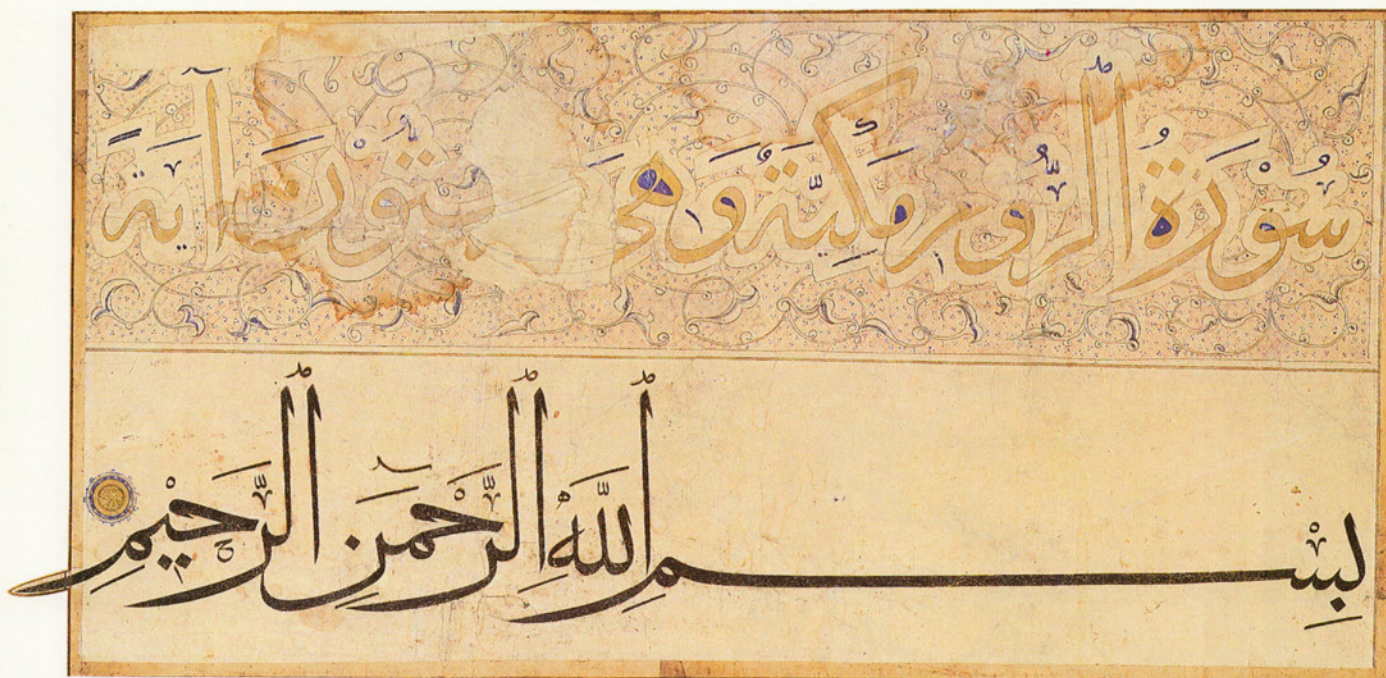 سُوْرَةُ الرُّوْمِ مَكِّيَّةٌ وَهِيَ سِتُّوْنَ آيَةً
بِسْمِ اللَّهِ الرَّحْمَنِ الرَّحِيْمِ